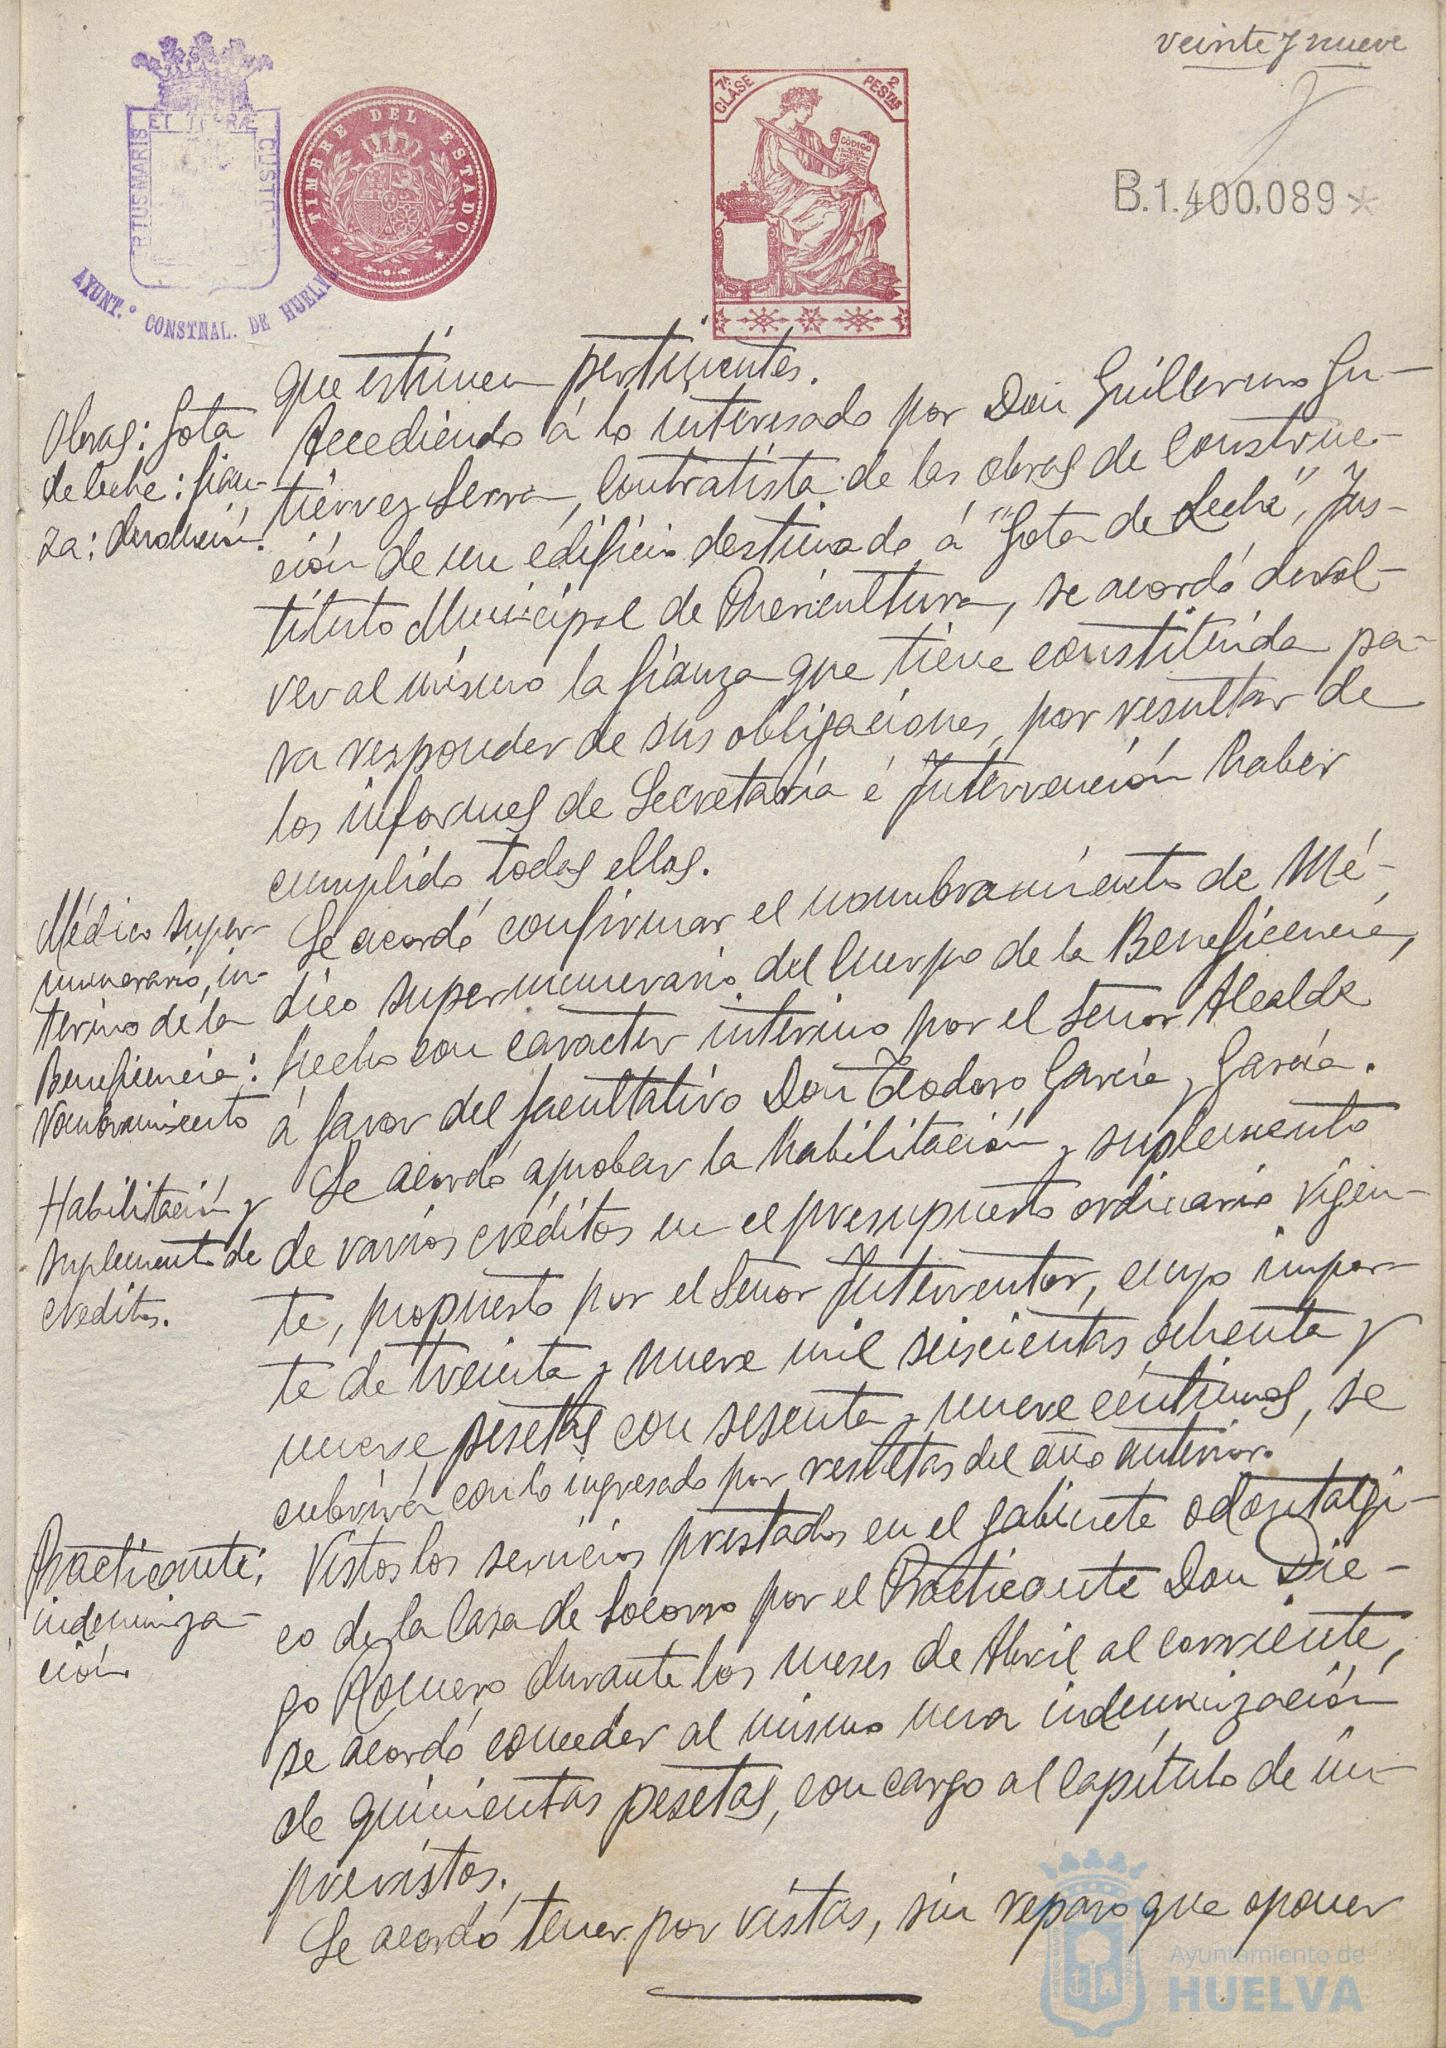 veinte y nueve
PORTUS MARIS
ET TERRÆ
CUSTODIA
AYUNT.º CONSTNAL. DE HUELVA
TIMBRE DEL ESTADO
7ª CLASE
2 PESTAS
CÓDIGO
B.1.400,089*
que estimen pertinentes.
Obras: Gota
de leche: fian-
za: devolución.
Accediendo á lo interesado por Don Guillermo Gu-
tiérrez Serra, contratista de las obras de construc-
ción de un edificio destinado á "Gota de Leche", Ins-
tituto Municipal de Puericultura, se acordó devol-
ver al mismo la fianza que tiene constituida pa-
ra responder de sus obligaciones, por resultar de
los informes de Secretaría é Intervención haber
cumplido todas ellas.
Médico super-
numerario, in-
terino de la
Beneficencia:
Nombramiento
Se acordó confirmar el nombramiento de Mé-
dico supernumerario del Cuerpo de la Beneficencia,
hecho con caracter interino por el Señor Alcalde
á favor del facultativo Don Teodoro García y García.
Habilitación y
suplemento de
creditos.
Se acordó aprobar la habilitación y suplemento
de varios créditos en el presupuesto ordinario vigen-
te, propuesto por el Señor Interventor, cuyo impor-
te de treinta y nueve mil seiscientas ochenta y
nueve pesetas con sesenta y nueve céntimos, se
cubrirá con lo ingresado por resultas del año anterior.
Practicante:
indemniza-
ción.
Vistos los servicios prestados en el gabinete odontalgi-
co de la Casa de Socorro por el Practicante Don Die-
go Romero durante los meses de Abril al corriente,
se acordó conceder al mismo una indemnización
de quinientas pesetas, con cargo al capítulo de im-
previstos.
Se acordó tener por vistas, sin reparo que oponer
Ayuntamiento de
HUELVA